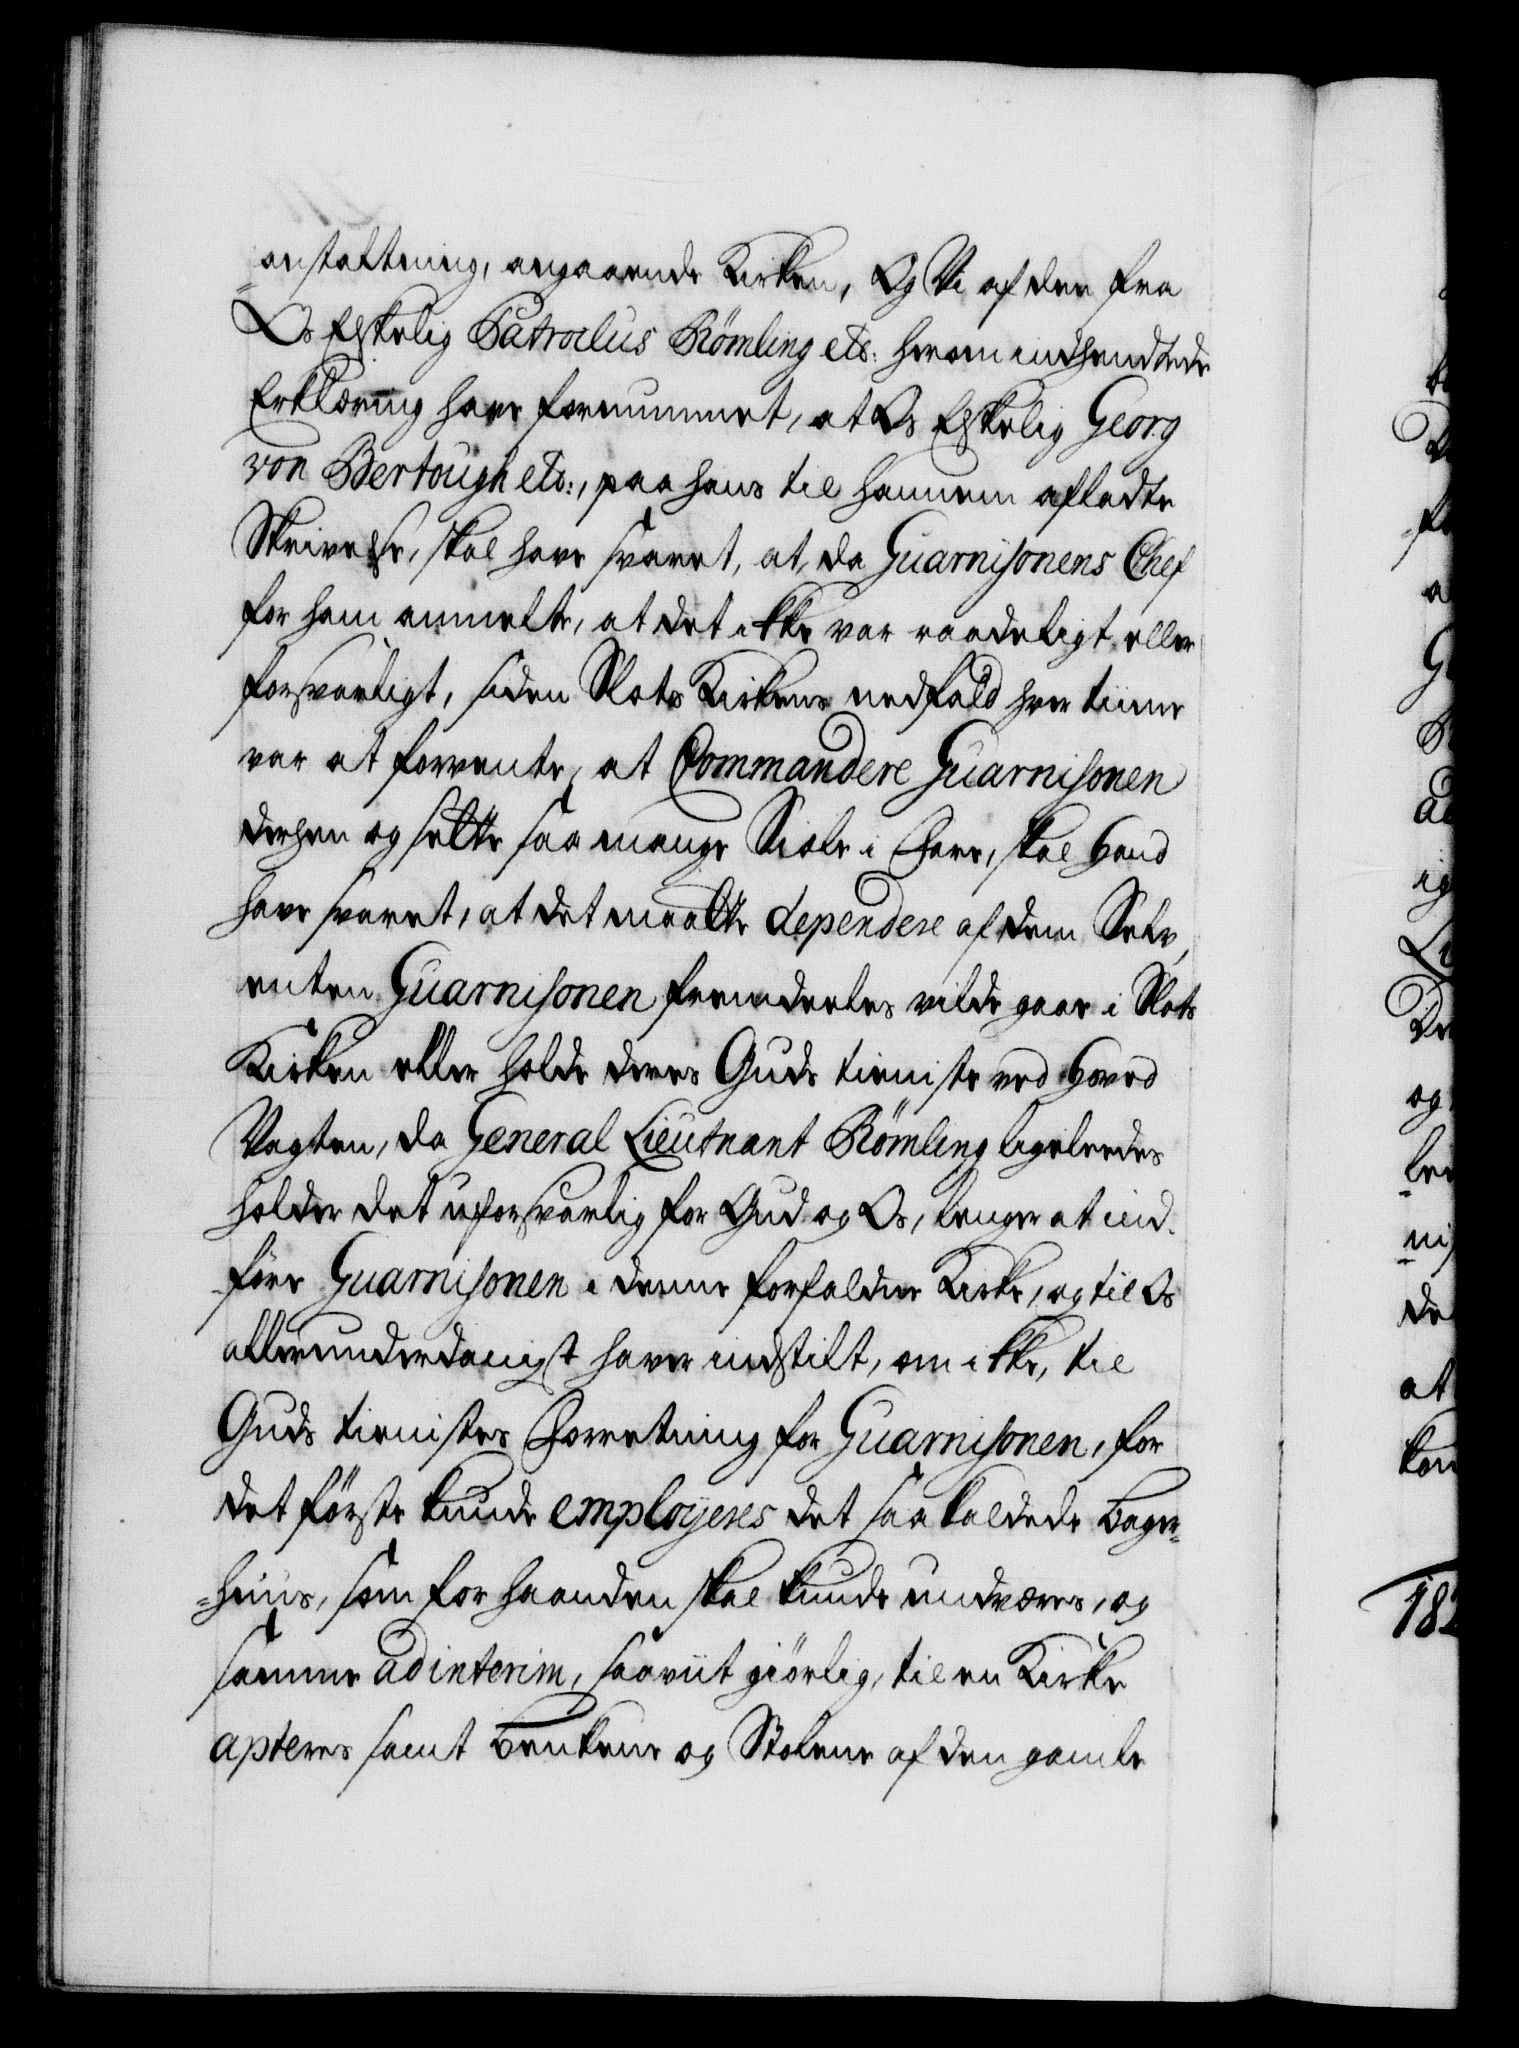 -anstaltning, angaaende Kirken, Og Vi af den fra
Os Elskelig Patroclus Römling etc: herom indhendtede
Erklæring have fornummet, at Os Elskelig Georg
von Bertough etc:, paa hans til hannem afladte
Skrivelse, skal have svaret, at, da Guarnisonens Chef
for ham anmelte, at det ikke var raadeligt eller
forsvarligt, siden Slots Kirkens nedfald hver time
var at forvente, at Commandere Guarnisonen
derhen og sette saa mange Siæle i Fare, skal hand
have svaret, at det maatte dependere af dem Selv,
enten Guarnisonen fremdeeles vilde gaae i Slots
Kirken eller holde deres Guds tieniste ved Hoved
Vagten, da General Lieutnant Römling ligeleedes
holder det uforsvarlig for Gud og Os, lenger at ind-
-føre Guarnisonen i denne forfaldne Kirke, og til Os
allerunderdanigst haver indstilt, om ikke, til
Guds tienistes Forretning for Guarnisonen, for
det første kunde employeres det saa kaldede Bager-
-huus, som for haanden skal kunde undværes, og
samme ad interim, saaviit giørlig, til en Kirke
apteres samt Benkene og Stolene af den gamle
182